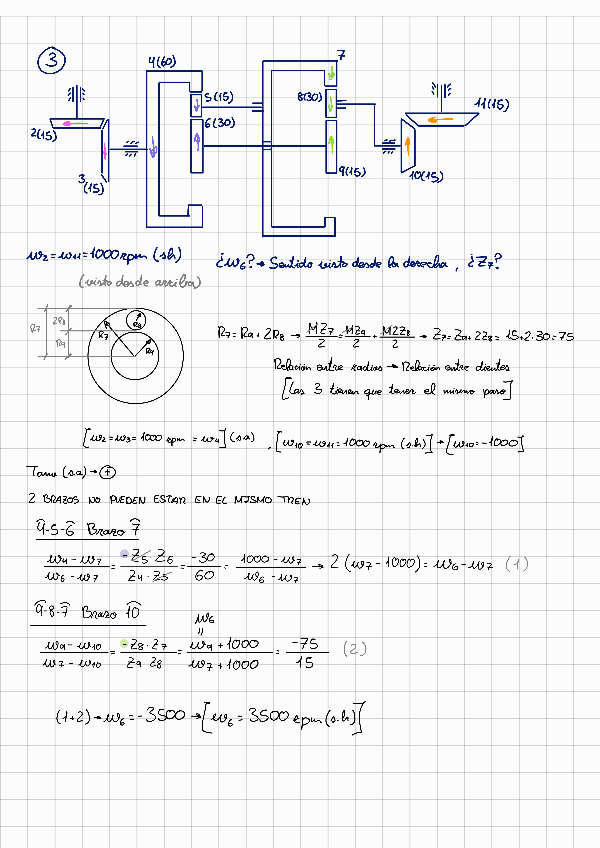 3
4(60)
7
5(15)
8(30)
11(15)
2(15)
6(30)
3
(15)
9(15)
10(15)
ω2=ω11=1000rpm (s.h)
¿ω6? → Sentido visto desde la derecha, ¿Z7?
(visto desde arriba)
R7 2R8 R9
R7 R8 R9
R7=R9+2R8 → MZ7/2 = MZ9/2 + M2Z8/2 → Z7=Z9+2Z8=15+2·30=75
Relación entre radios → Relación entre dientes
[las 3 tienen que tener el mismo paso]
[ω2=ω3=1000 rpm = ω4](s.a) , [ω10=ω11=1000 rpm (s.h)] → [ω10=-1000]
Tomo (s.a) → +
2 BRAZOS NO PUEDEN ESTAR EN EL MISMO TREN
4-5-6 Brazo 7
(ω4-ω7)/(ω6-ω7) = (-Z5·Z6)/(Z4·Z5) = -30/60 = (1000-ω7)/(ω6-ω7) → 2(ω7-1000)=ω6-ω7 (1)
9-8-7 Brazo 10
ω6
=
(ω9-ω10)/(ω7-ω10) = (-Z8·Z7)/(Z9 Z8) = (ω9+1000)/(ω7+1000) = -75/15 (2)
(1+2) → ω6=-3500 → [ω6=3500 rpm (s.h)]